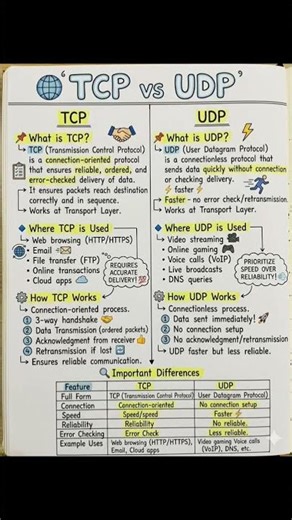 'TCP vs UDP'
TCP
What is TCP?
TCP (Transmission Control Protocol)
is a connection-oriented protocol
that ensures reliable, ordered, and
error-checked delivery of data.
It ensures packets reach destination
correctly and in sequence.
Works at Transport Layer.
Where TCP is Used
Web browsing (HTTP/HTTPS)
Email
File transfer (FTP)
Online transactions
Cloud apps
REQUIRES
ACCURATE
DELIVERY!
How TCP Works
Connection-oriented process.
1 3-way handshake
2 Data Transmission (ordered packets)
3 Acknowledgment from receiver
4 Retransmission if lost
Ensures reliable communication.
UDP
What is UDP?
UDP (User Datagram Protocol)
is a connectionless protocol that
sends data quickly without connection
or checking delivery.
faster
Faster - no error check/retransmission.
Works at Transport Layer.
Where UDP is Used
Video streaming
Online gaming
Voice calls (VoIP)
Live broadcasts
DNS queries
PRIORITIZE
SPEED OVER
RELIABILITY!
How UDP Works
Connectionless process.
1 Data sent immediately!
2 No connection setup
3 No acknowledgment/retransmission
UDP faster but less reliable.
Important Differences
Feature TCP UDP
Full Form TCP (Transmission Control Protocol) User Datagram Protocol)
Connection Connection-oriented No connection setup
Speed Speed/speed Faster
Reliability Reliability No reliable.
Error Checking Error Check Less reliable.
Example Uses Web browsing (HTTP/HTTPS), Email, Cloud apps Video gaming Voice calls (VoIP), DNS, etc.